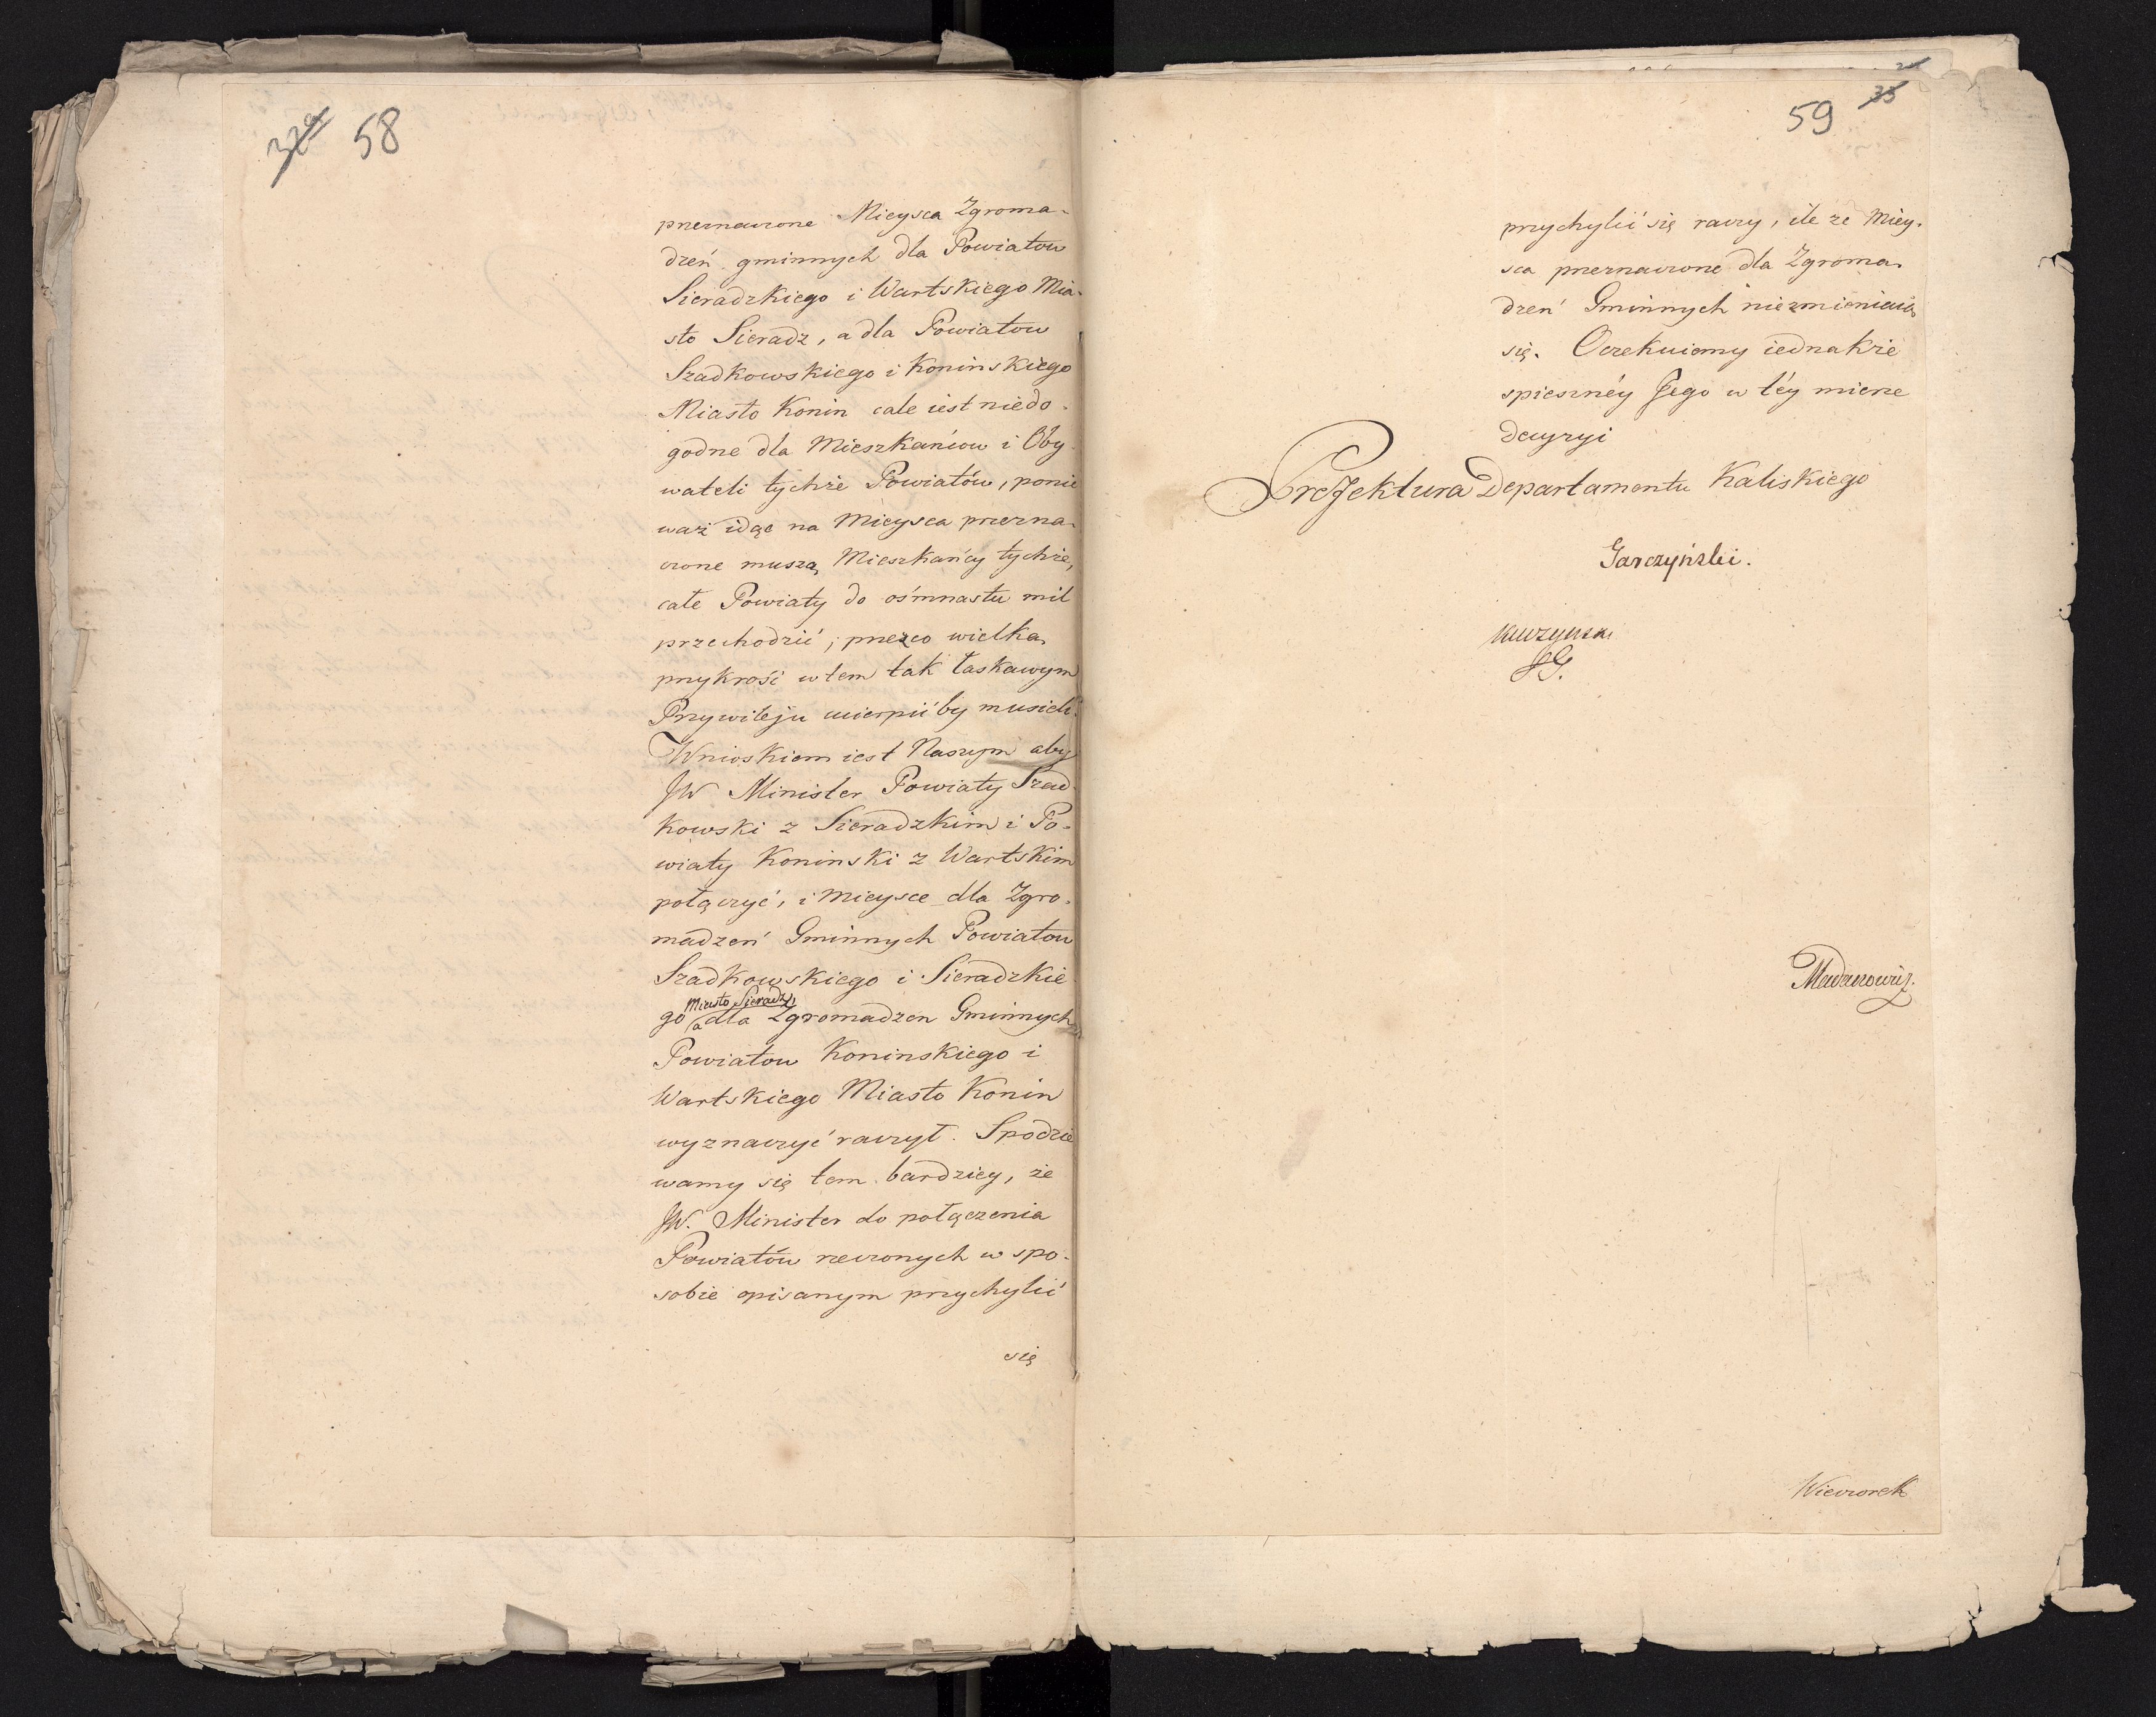 58
przeznaczone Mieysca Zgroma-
dzeń gminnych dla Powiatow
Sieradzkiego i Wartskiego Mia-
sto Sieradz, a dla Powiatow
Szadkowskiego i Koninskiego
Miasto Konin cale iest niedo-
godne dla Mieszkańcow i Oby
wateli tychże Powiatów, ponie
waż idąc na Mieysca przezna-
czone muszą Mieszkańcy tychże,
całe Powiaty do ośmnastu mil
przechodzić, przezco wielką
przykrość w tem tak łaskawym
Przywileju cierpićby musieli.
Wnioskiem iest Naszym aby
JW Minister Powiaty Szad
kowski z Sieradzkim i Po-
wiaty Koninski z Wartskim
połączyć, i Mieysce dla Zgro-
madzeń Gminnych Powiatow
Szadkowskiego i Sieradzkie
Miasto Sieradz,
go a dla Zgromadzen Gminnych
Powiatow Koninskiego i
Wartskiego Miasto Konin
wyznaczyć raczył. Spodzie
wamy się tem bardziey, że
JW. Minister do połączenia
Powiatów rzeczonych w spo-
sobie opisanym przychylić
się
59
35
przychylić się raczy, ile ze Miey-
sca przeznaczone dla Zgroma-
dzeń Gminnych niezmieniaią
się. Oczekuiemy iednakże
spieszney Jego w téy mierze
decyzyi
Prefektura Departamentu Kaliskiego
Garczyński.
JG.
Wieczorek